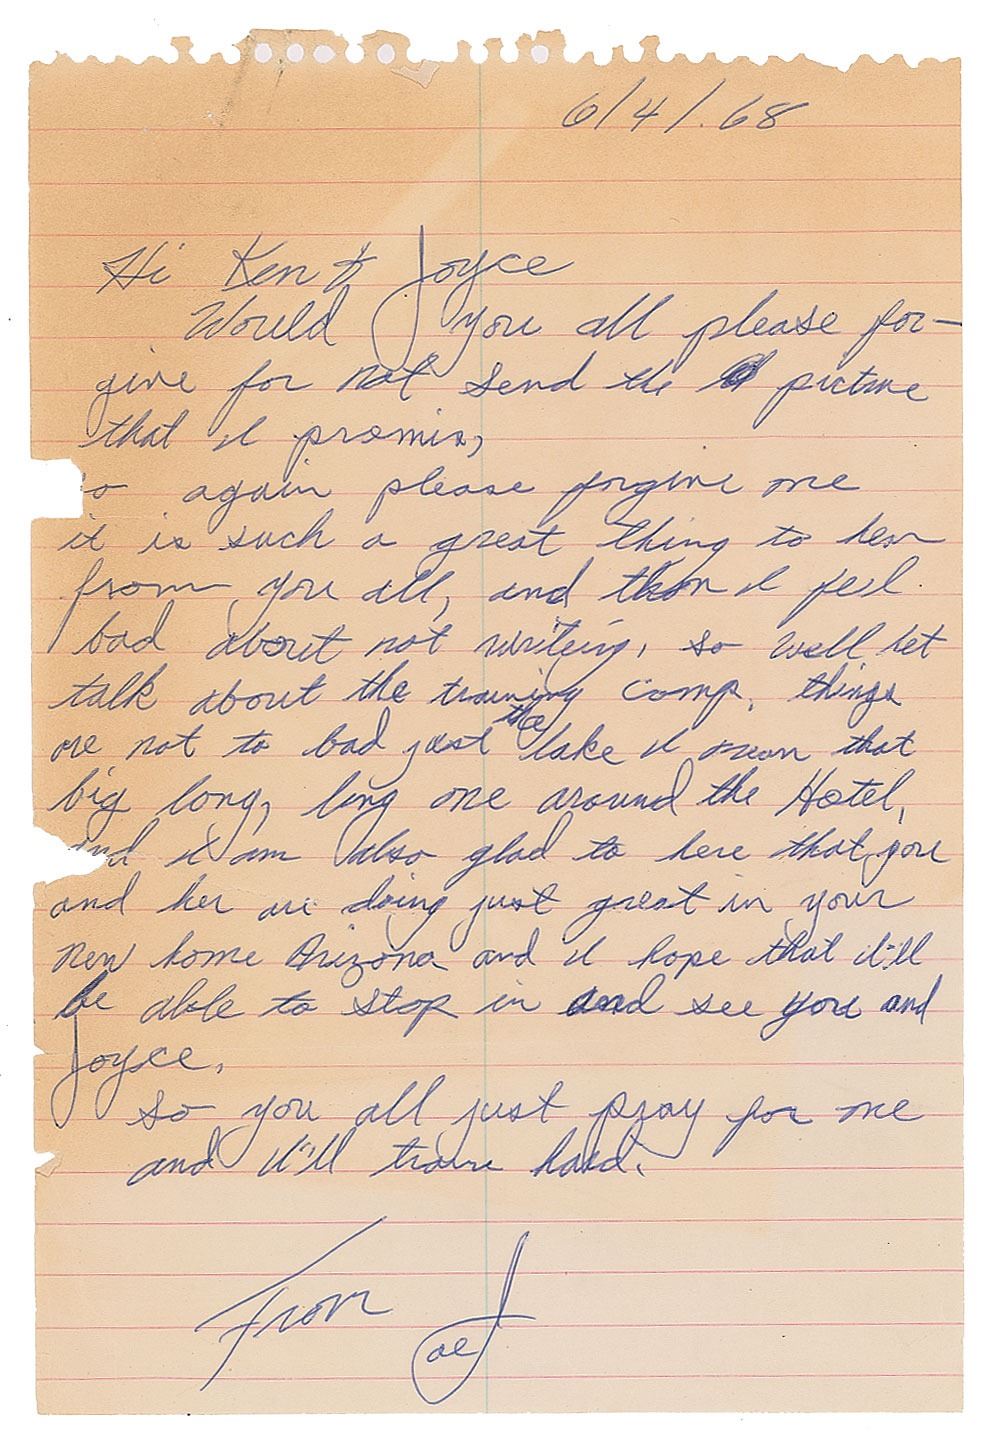 6/4/.68
Hi Ken & Joyce
Would you all please for-
give for not send the picture
that I promis,
so again please forgive me
it is such a great thing to hear
from you all, and then I feel
bad about not writeing, so well let
talk about the training camp, things
are not to bad just the lake I mean that
big long, long one around the Hotel,
and I am also glad to here that you
and her are doing just great in your
new home Arizona and I hope that I'll
be able to stop in and see you and
Joyce.
so you all just pray for me
and I'll train hard.
From Joe